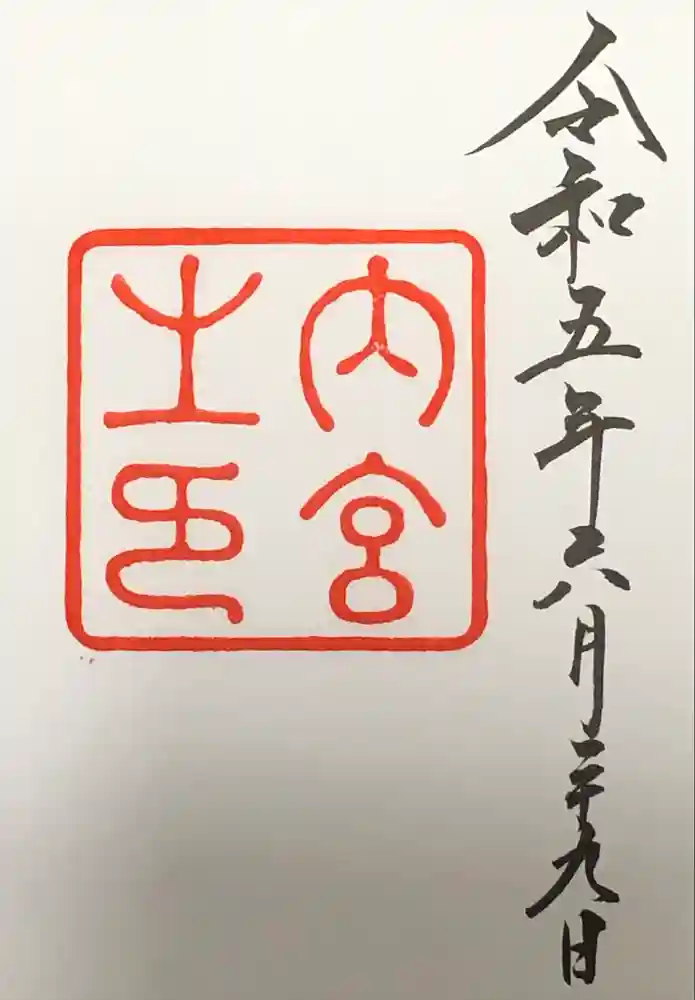 令和五年六月二十九日
内宮
之印